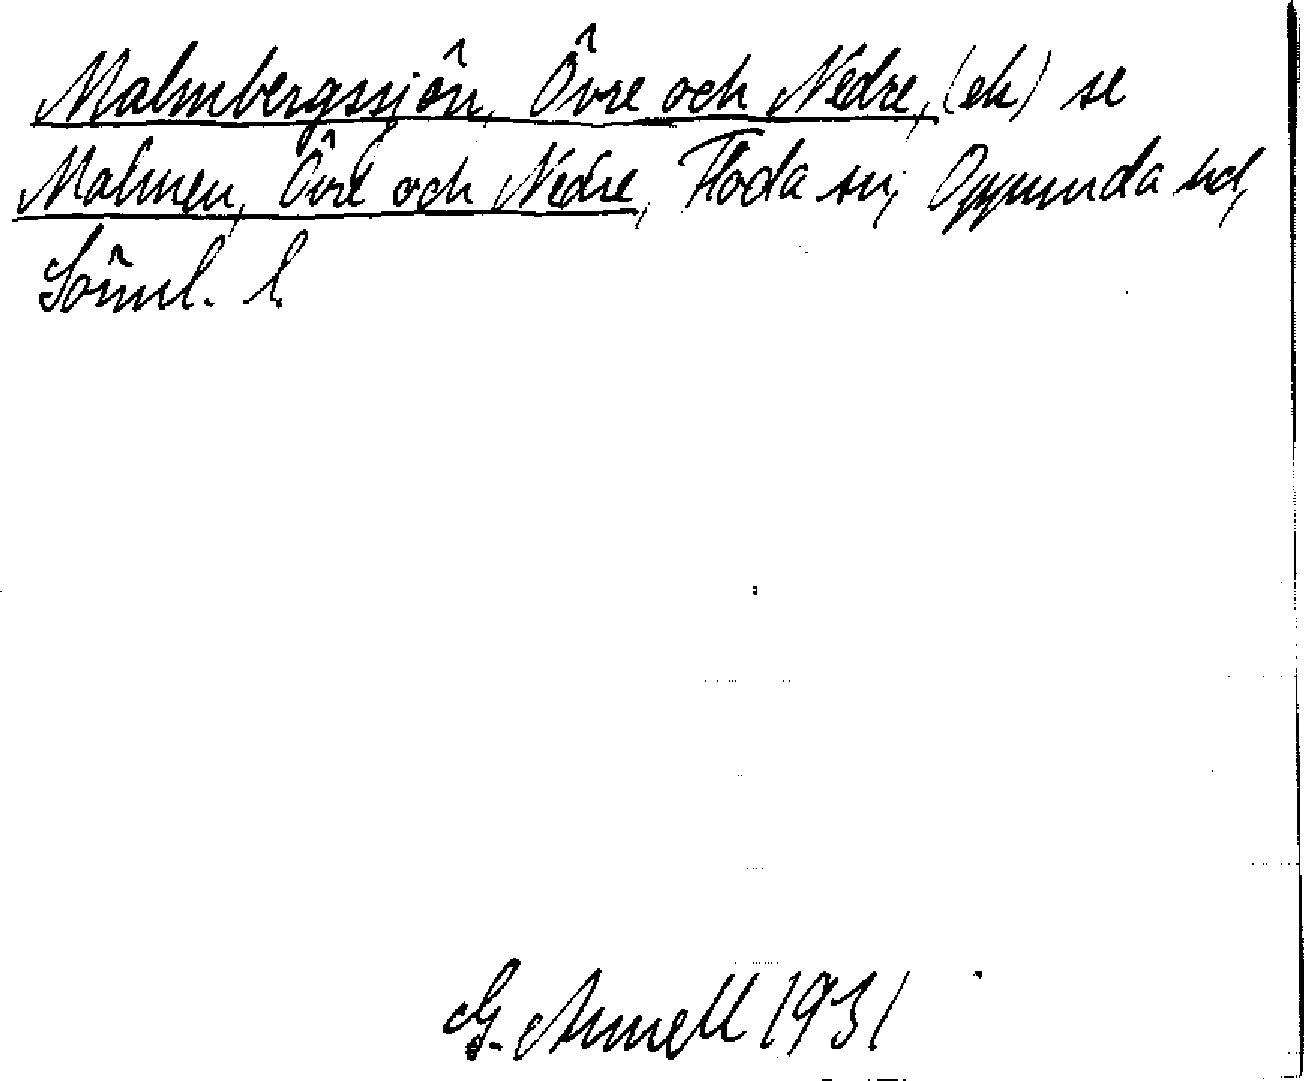 Malmbergssjön, Övre och Nedre, (ek) se
Malmen, Övre och Nedre, Floda sn, Oppunda hd,
Sörml. l.
G. Arnell 1931